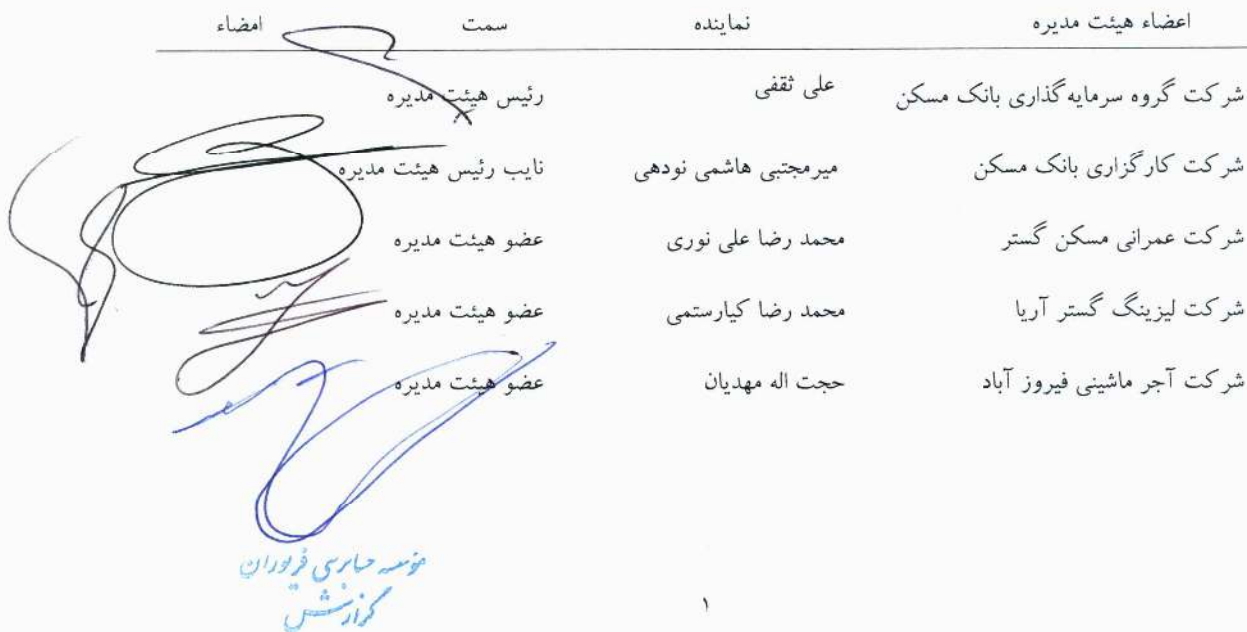 اعضاء هیئت مدیره نماینده سمت امضاء
شرکت گروه سرمایه‌گذاری بانک مسکن علی ثقفی رئیس هیئت مدیره
شرکت کارگزاری بانک مسکن میرمجتبی هاشمی نودهی نایب رئیس هیئت مدیره
شرکت عمرانی مسکن گستر محمد رضا علی نوری عضو هیئت مدیره
شرکت لیزینگ گستر آریا محمد رضا کیارستمی عضو هیئت مدیره
شرکت آجر ماشینی فیروز آباد حجت اله مهدیان عضو هیئت مدیره
موسسه حسابرسی فریوران
گزارش
۱